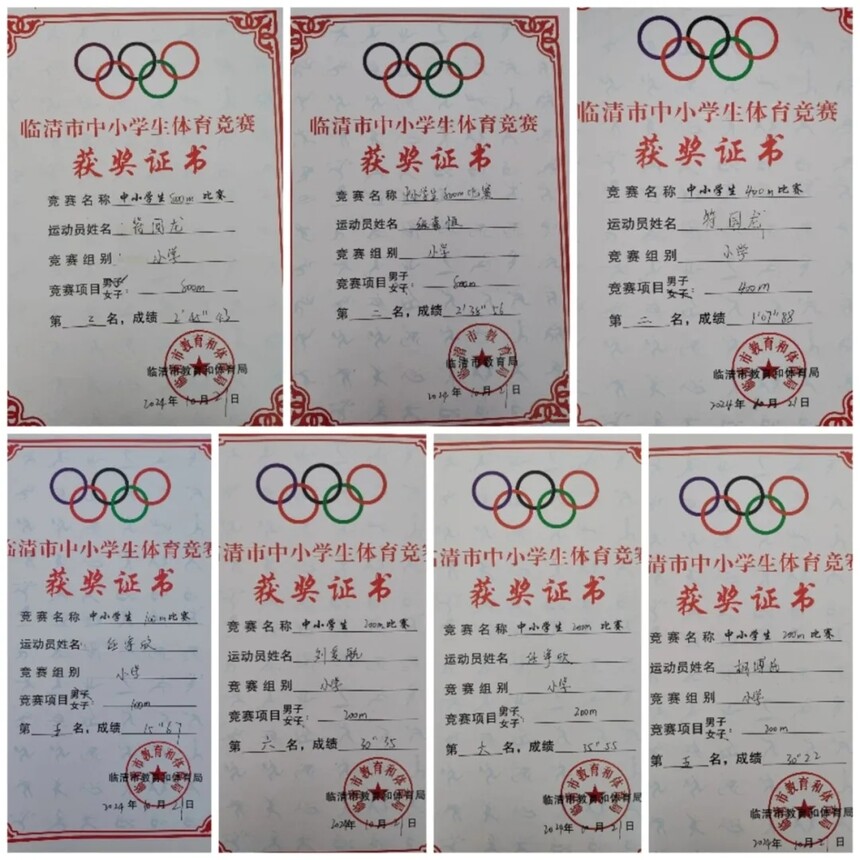 临清市中小学生体育竞赛
获奖证书
竞赛名称 中小学生 800m 比赛
运动员姓名 国龙
竞赛组别: 小学
竞赛项目 男子 女子: 800m
第 三 名，成绩 2'45"43
临清市教育和体育局
2024年10月21日
临清市中小学生体育竞赛
获奖证书
竞赛名称 中小学生 800m 比赛
运动员姓名
竞赛组别 小学
竞赛项目 男子 女子: 800m
第 二 名，成绩 2'38"56
临清市教育局
2024年10月21日
临清市中小学生体育竞赛
获奖证书
竞赛名称 中小学生 400m 比赛
运动员姓名 国龙
竞赛组别 小学
竞赛项目 男子 女子: 400m
第 二 名，成绩 1'07"88
临清市教育和体育局
2024年10月21日
临清市中小学生体育竞赛
获奖证书
竞赛名称 中小学生 100m 比赛
运动员姓名: 任宇欣
竞赛组别 小学
竞赛项目 男子 女子: 100m
第 五 名，成绩 15"67
临清市教育和体育局
2024年10月21日
清市中小学生体育竞赛
获奖证书
竞赛名称 中小学生 200m 比赛
运动员姓名 刘 航
竞赛组别 小学
竞赛项目 男子 女子: 200m
第 六 名，成绩 30"35
临清市教育和体育局
2024年10月21日
清市中小学生体育竞赛
获奖证书
竞赛名称 中小学生 200m 比赛
运动员姓名: 任宇欣
竞赛组别 小学
竞赛项目 男子 女子: 200m
第 六 名，成绩 35"55
临清市教育和体育局
2024年10月21日
清市中小学生体育竞赛
获奖证书
竞赛名称 中小学生 200m 比赛
运动员姓名
竞赛组别 小学
竞赛项目 男子 女子: 200m
第 五 名，成绩 30"22
临清市教育和体育局
2024年10月21日